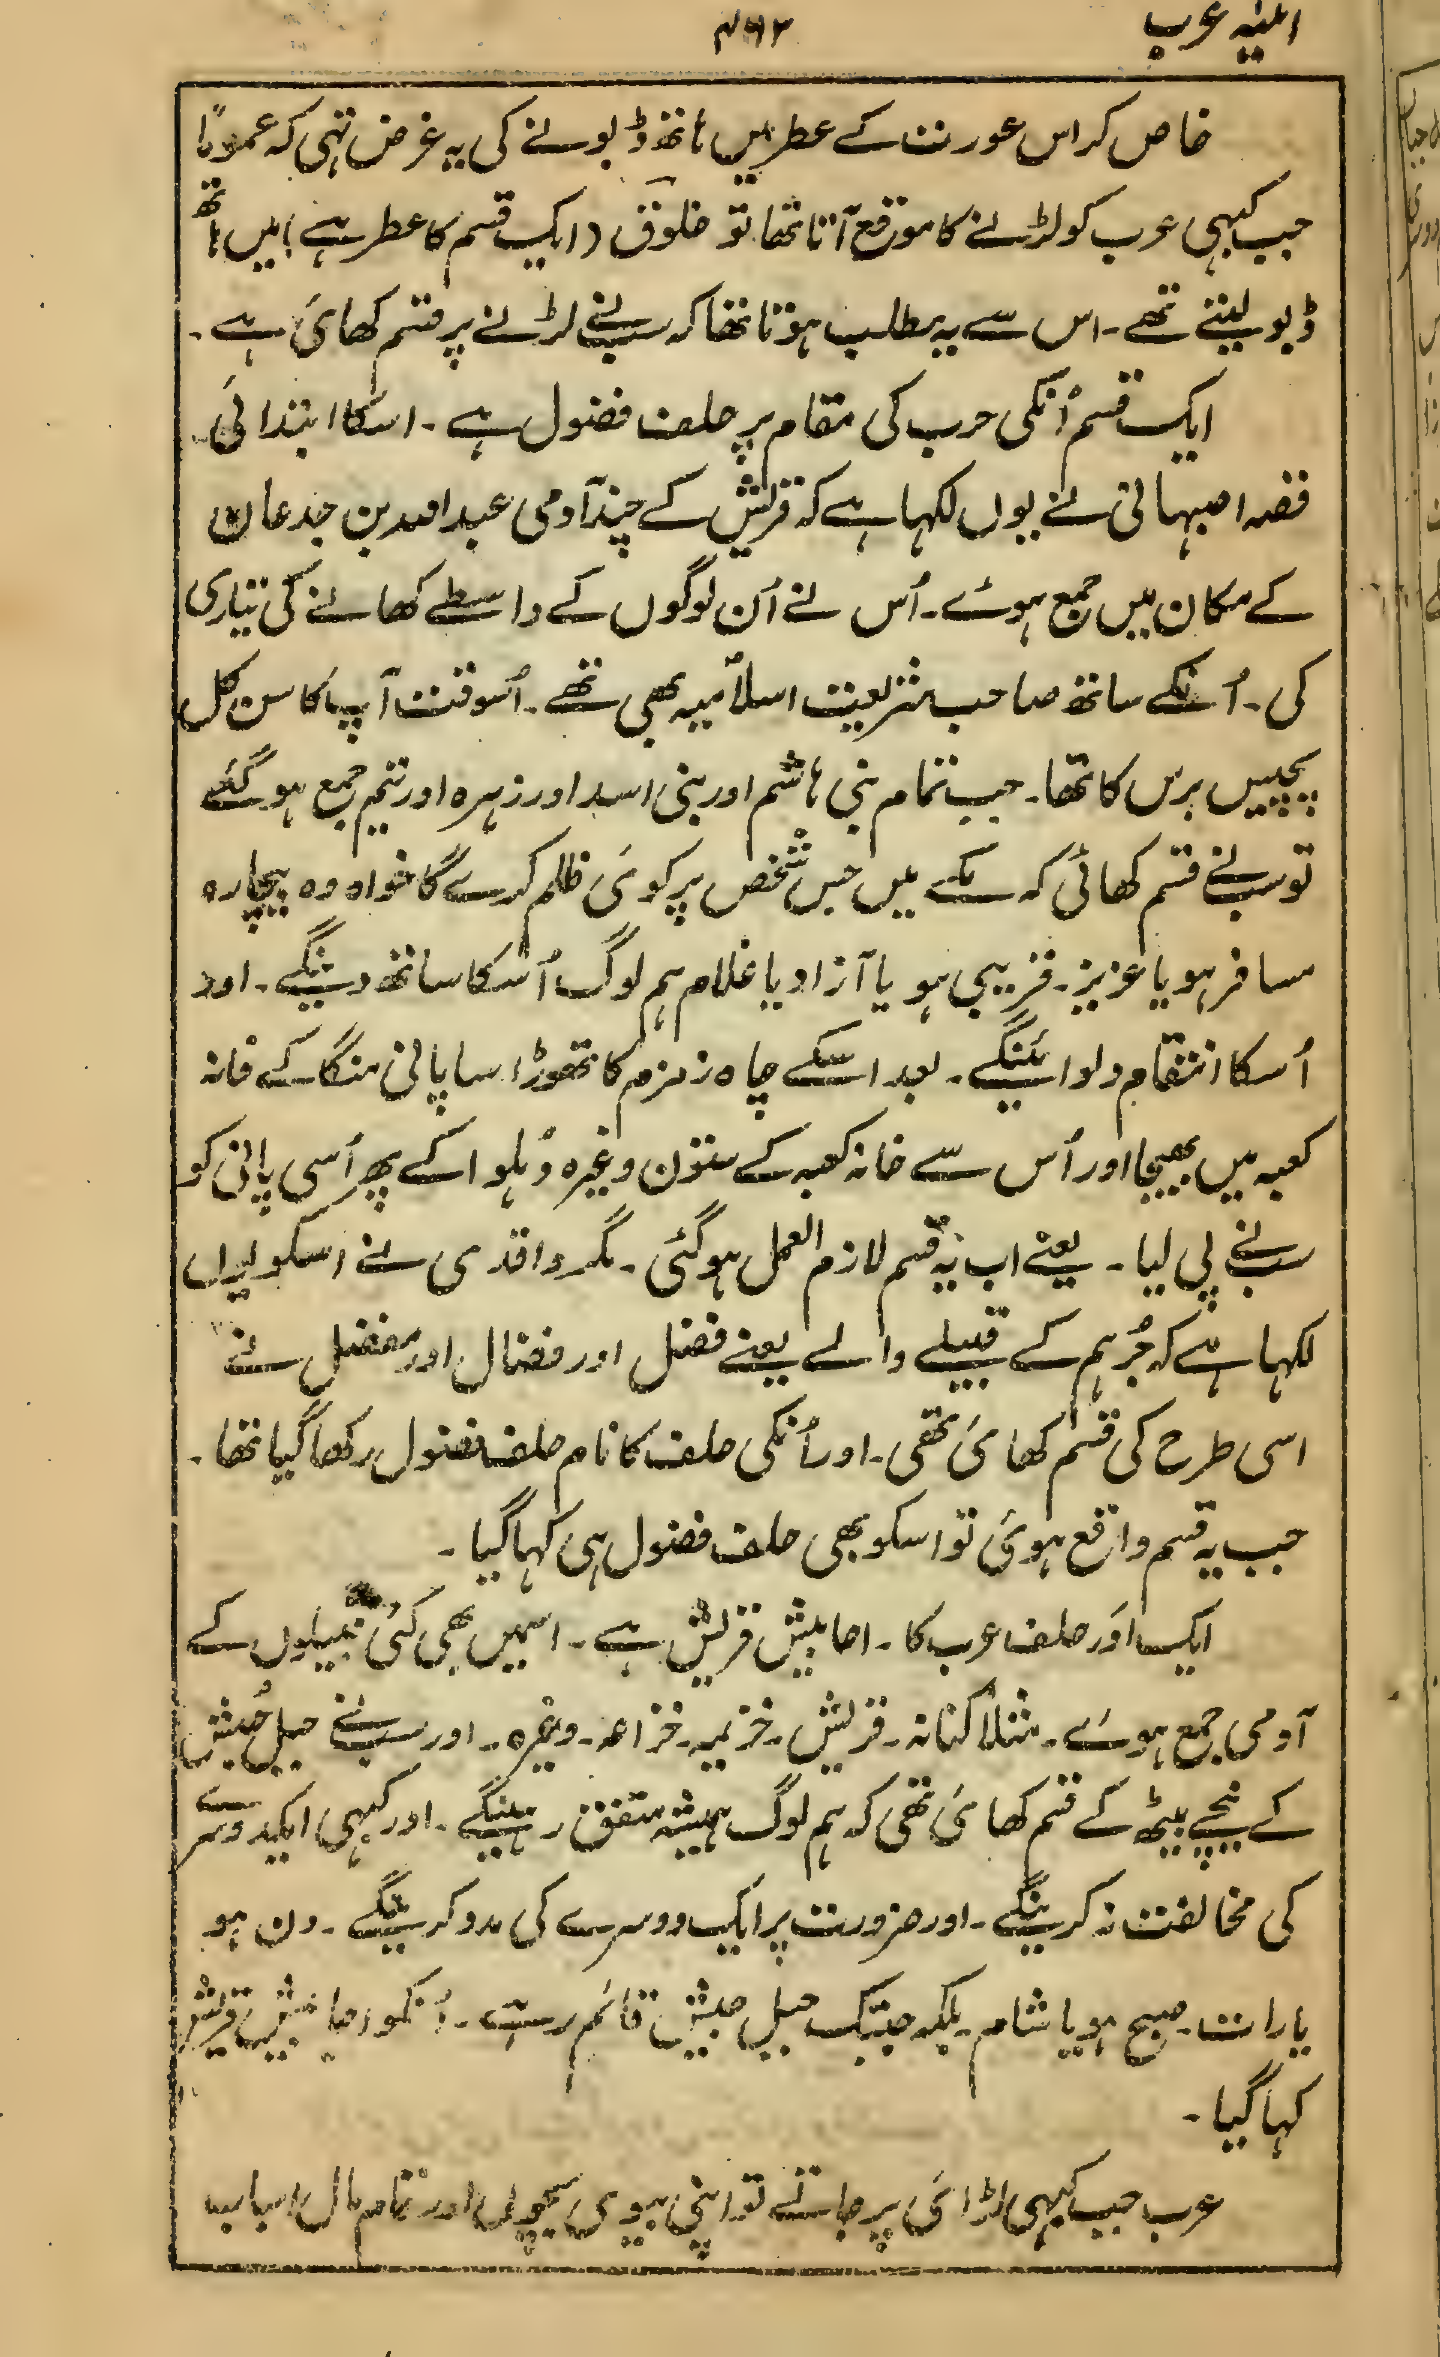 ۴۶۲ المیۂ عرب
خاص کر اس عورت کے عطر میں ہاتھ ڈبونے کی یہ غرض تہی کہ عموماً
جب کبہی عرب کو لڑنے کا موقع آتا تھا تو خلوق (ایک قسم کا عطر ہے) میں ہاتھ
ڈبو لیتے تھے۔ اس سے یہ مطلب ہوتا تھا کہ سبنے لڑنے پر قسم کھائی ہے۔
ایک قسم اُنکی حرب کی مقام پر حلف فضول ہے۔ اسکا ابتدائی
قصہ اصبہانی نے یوں لکہا ہے کہ قریش کے چند آدمی عبد اللہ بن جدعان
کے مکان میں جمع ہوئے۔ اُس نے اُن لوگوں کے واسطے کھانے کی تیاری
کی۔ اُنکے ساتھ صاحب شریعت اسلامیہ بھی تھے۔ اُسوقت آپ کا سن کل
پچیس برس کا تھا۔ جب تمام بنی ہاشم اور بنی اسد اور زہرہ اور تیم جمع ہو گئے
تو سبنے قسم کھائی کہ مکے میں جس شخص پر کوئی ظلم کرے گا خواہ وہ بیچارہ
مسافر ہو یا عزیز۔ قریبی ہو یا آزاد یا غلام ہم لوگ اُسکا ساتھ دینگے۔ اور
اُسکا انتقام دلوائینگے۔ بعد اسکے چاہ زمزم کا تھوڑا سا پانی منگا کے خانہ
کعبہ میں بھیجا اور اُس سے خانہ کعبہ کے ستون وغیرہ دُہلوا کے پھر اُسی پانی کو
سبنے پی لیا۔ یعنے اب یہ قسم لازم العمل ہو گئی۔ مگر واقدی نے اسکو یوں
لکہا ہے کہ جُرہم کے قبیلے والے یعنے فضل اور فضال اور مفضل نے
اسی طرح کی قسم کھائی تھی۔ اور اُنکی حلف کا نام حلف فضول رکھا گیا تھا۔
جب یہ قسم واقع ہوئی تو اسکو بھی حلف فضول ہی کہا گیا۔
ایک اَور حلف عرب کا۔ احابیش قریش ہے۔ اسمیں بھی کئی قبیلوں کے
آدمی جمع ہوئے۔ مثلاً کنانہ۔ قریش۔ خزیمہ۔ خزاعہ۔ وغیرہ۔ اور سبنے جبل حُبیش
کے نیچے بیٹھ کے قسم کھائی تھی کہ ہم لوگ ہمیشہ متفق رہینگے۔ اور کبہی ایکدوسرے
کی مخالفت نہ کرینگے۔ اور ضرورت پر ایک دوسرے کی مدد کرینگے۔ دن ہو
یا رات۔ صبح ہو یا شام۔ بلکہ جبتک جبل حبیش قائم رہے۔ اُنکو احابیش قریش
کہا گیا۔
عرب جب کبہی لڑائی پر جاتے تو اپنی بیوی بچوں اور تمام مال اسباب